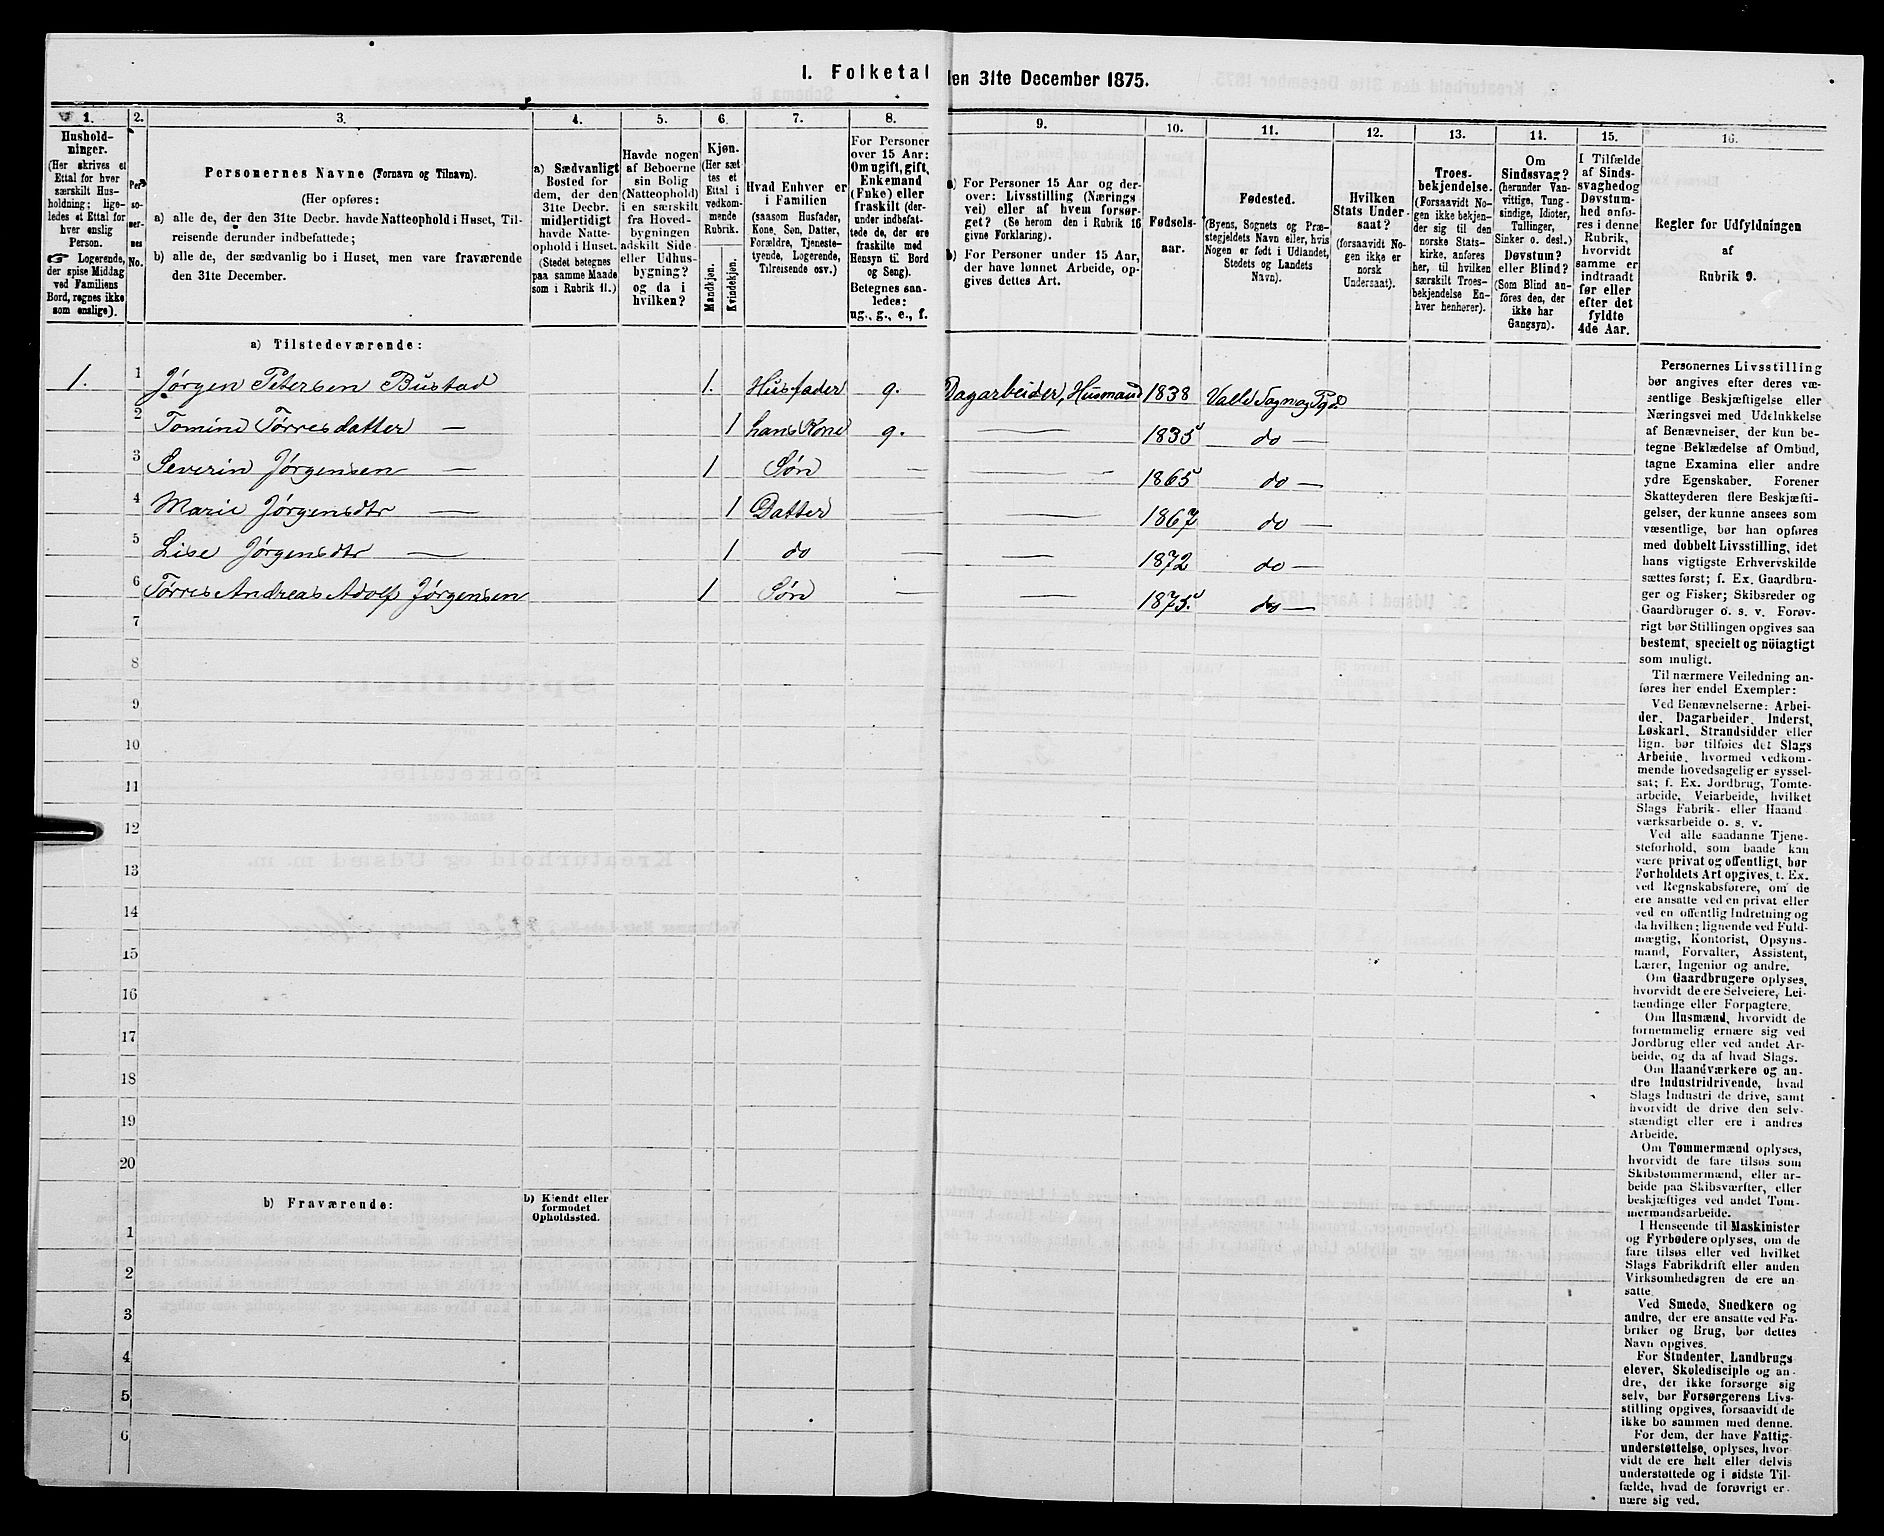 I. Folketal den 31te December 1875.
1. 2. 3. 4. 5. 6. 7. 8. 9. 10. 11. 12. 13. 14. 15. 16.
Hushold-
ninger.
(Her skrives et
Ettal for hver
særskilt Hus-
holdning; lige-
ledes et Ettal for
hver enslig
Person.
☛ Logerende,
der spise Middag
ved Familiens
Bord, regnes ikke
som enslige).
Per-
so-
ner-
nes
No.
Personernes Navne (Fornavn og Tilnavn).
(Her opføres:
a) alle de, der den 31te Decbr. havde Natteophold i Huset, Til-
reisende derunder indbefattede;
b) alle de, der sædvanlig bo i Huset, men vare fraværende
den 31te December.
a) Sædvanligt
Bosted for
dem, der den
31te Decbr.
midlertidigt
havde Natte-
ophold i Huset.
(Stedet betegnes
paa samme Maade
som i Rubrik 11.)
Havde nogen
af Beboerne
sin Bolig
(Natteophold)
i en særskilt
fra Hoved-
bygningen
adskilt Side-
eller Udhus-
bygning?
og da i
hvilken?
Kjøn.
(Her sæt-
tes et
Ettal i
vedkom-
mende
Rubrik.
Mandkjøn.
Kvindekjøn.
Hvad Enhver er
i Familien
(saasom Husfader,
Kone, Søn, Datter,
Forældre, Tjeneste-
tyende, Logerende,
Tilreisende osv.)
For Personer
over 15 Aar:
Om ugift, gift,
Enkemand
(Enke) eller
fraskilt (der-
under indbefat-
tede de, der ere
fraskilte med
Hensyn til Bord
og Seng).
Betegnes saa-
ledes:
ug., g., e., f.
a) For Personer 15 Aar og der-
over: Livsstilling (Nærings-
vei) eller af hvem forsør-
get? (Se herom den i Rubrik 16
givne Forklaring).
b) For Personer under 15 Aar,
der have lønnet Arbeide, op-
gives dettes Art.
Fødsels-
aar.
Fødested.
(Byens, Sognets og Præ-
stegjeldets Navn eller, hvis
Nogen er født i Udlandet,
Stedets og Landets
Navn).
Hvilken
Stats Under-
saat?
(forsaavidt No-
gen ikke er
norsk
Undersaat).
Troes-
bekjendelse.
(Forsaavidt No-
gen ikke bekjen-
der sig til den
norske Stats-
kirke, anføres
her, til hvilken
særskilt Troes-
bekjendelse En-
hver henhører).
Om
Sindssvag?
(herunder Van-
vittige, Tung-
sindige, Idioter,
Tullinger,
Sinker o. desl.)
Døvstum?
eller Blind?
(Som Blind an-
føres den, der
ikke har
Gangsyn).
I Tilfælde
af Sinds-
svaghed og
Døvstum-
hed anfø-
res i denne
Rubrik,
hvorvidt
samme er
indtraadt
før eller
efter det
fyldte
4de Aar.
Regler for Udfyldningen
af
Rubrik 9.
a) Tilstedeværende:
1. 1 Jørgen Petersen Bustad 1. Husfader g. Dagarbeider, Husmand 1838 Valle Sogn og Pgd
2 Tomine Tørresdatter — 1 hans Kone g. — 1835 do —
3 Severin Jørgensen — 1 Søn — — 1865 do —
4 Marie Jørgensdtr — 1 Datter — 1867 do —
5 Lise Jørgensdtr — 1 do — — 1872 do —
6 Tørres Andreas Adolf Jørgensen 1 Søn — — 1875. do —
7
8
9
10
11
12
13
14
15
16
17
18
19
20
b) Fraværende:
b) Kjendt eller
formodet
Opholdssted.
1
2
3
4
5
6
Personernes Livsstilling
bør angives efter deres væ-
sentlige Beskjæftigelse eller
Næringsvei med Udelukkelse
af Benævnelser, der kun be-
tegne Beklædelse af Ombud,
tagne Examina eller andre
ydre Egenskaber. Forener
Skatteyderen flere Beskjæfti-
gelser, der kunne ansees som
væsentlige, bør han opføres
med dobbelt Livsstilling, idet
hans vigtigste Erhvervskilde
sættes først; f. Ex. Gaardbru-
ger og Fisker; Skibsreder og
Gaardbruger o. s. v. Forøv-
rigt bør Stillingen opgives saa
bestemt, specielt og nöiagtigt
som muligt.
Til nærmere Veiledning an-
føres her endel Exempler:
Ved Benævnelserne: Arbei-
der, Dagarbeider, Inderst,
Løskarl, Strandsidder eller
lign. bør tilføies det Slags
Arbeide, hvormed vedkom-
mende hovedsagelig er syssel-
sat; f. Ex. Jordbrug, Tomte-
arbeide, Veiarbeide, hvilket
Slags Fabrik- eller Haand-
værksarbeide o. s. v.
Ved alle saadanne Tjene-
steforhold, som baade kan
være privat og offentligt, bør
Forholdets Art opgives, t. Ex.
ved Regnskabsførere, om de
ere ansatte ved en privat eller
ved en offentlig Indretning og
da hvilken; lignende ved Fuld-
mægtig, Kontorist, Opsyns-
mand, Forvalter, Assistent,
Lærer, Ingeniør og andre.
Om Gaardbrugere oplyses,
hvorvidt de ere Selveiere, Lei-
lændinge eller Forpagtere.
Om Husmænd, hvorvidt de
fornemmelig ernære sig ved
Jordbrug eller ved andet Ar-
beide, og da af hvad Slags.
Om Haandværkere og an-
dre Industridrivende, hvad
Slags Industri de drive, samt
hvorvidt de drive den selv-
stændigt eller ere i andres
Arbeide.
Om Tømmermænd oplyses,
hvorvidt de fare tilsøs som
Skibstømmermænd, eller ar-
beide paa Skibsværfter, eller
beskjæftiges ved andet Tøm-
mermandsarbeide.
I Henseende til Maskinister
og Fyrbødere oplyses, om de
fare tilsøs eller ved hvilket
Slags Fabrikdrift eller anden
Virksomhedsgren de ere an-
satte.
Ved Smede, Snedkere og
andre, der ere ansatte ved Fa-
briker og Brug, bør dettes
Navn opgives.
For Studenter, Landbrugs-
elever, Skoledisciple og an-
dre, der ikke forsørge sig
selv, bør Forsørgerens Livs-
stilling opgives, forsaavidt de
ikke bo sammen med denne.
For dem, der have Fattig-
understøttelse, oplyses, hvor-
vidt de ere helt eller delvis
understøttede og i sidste Til-
fælde, hvad de forøvrigt er-
nære sig ved.